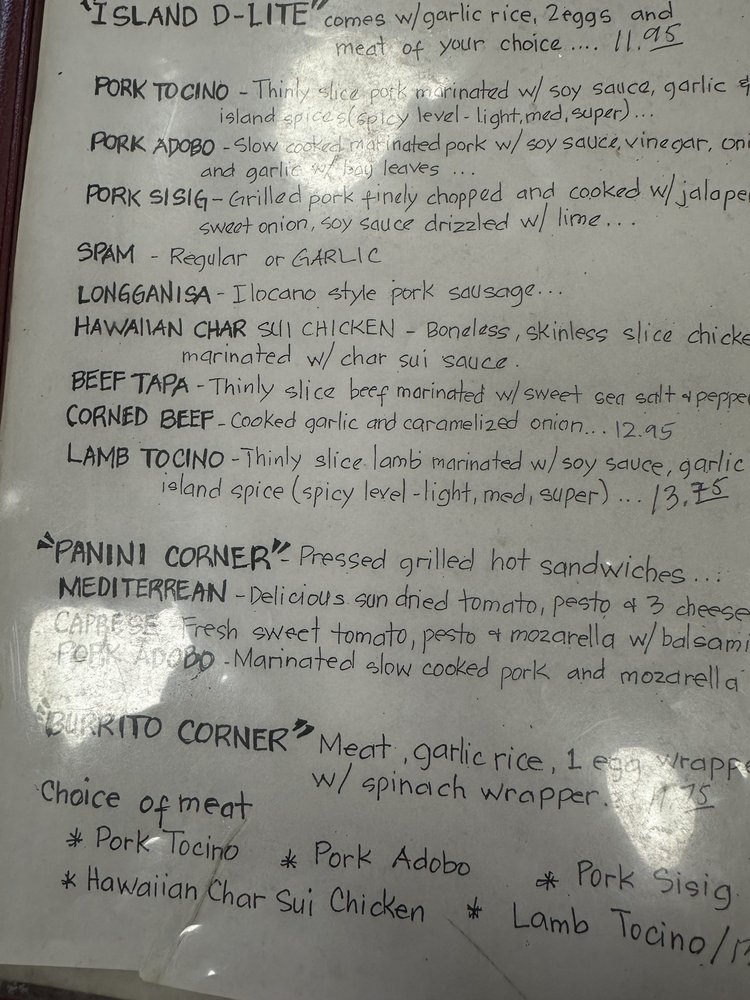 "ISLAND D-LITE" comes w/garlic rice, 2eggs and
meat of your choice .... 11.95
PORK TOCINO - Thinly slice pork marinated w/ soy sauce, garlic &
island spices (spicy level - light, med, super) ...
PORK ADOBO - Slow cooked marinated pork w/ soy sauce, vinegar, oni
and garlic w/ bay leaves ...
PORK SISIG - Grilled pork finely chopped and cooked w/ jalape
sweet onion, soy sauce drizzled w/ lime ...
SPAM - Regular or GARLIC
LONGGANISA - Ilocano style pork sausage...
HAWAIIAN CHAR SUI CHICKEN - Boneless, skinless slice chicke
marinated w/ char sui sauce.
BEEF TAPA - Thinly slice beef marinated w/ sweet sea salt & pepper
CORNED BEEF - Cooked garlic and caramelized onion... 12.95
LAMB TOCINO - Thinly slice lamb marinated w/ soy sauce, garlic
island spice (spicy level - light, med, super) ... 13.75
"PANINI CORNER" - Pressed grilled hot sandwiches ...
MEDITERREAN - Delicious sun dried tomato, pesto & 3 cheese
CAPRESE Fresh sweet tomato, pesto & mozarella w/ balsami
PORK ADOBO - Marinated slow cooked pork and mozarella
"BURRITO CORNER" Meat, garlic rice, 1 egg wrappe
w/ spinach wrapper. 11.75
Choice of meat
* Pork Tocino * Pork Adobo * Pork Sisig
* Hawaiian Char Sui Chicken * Lamb Tocino/13